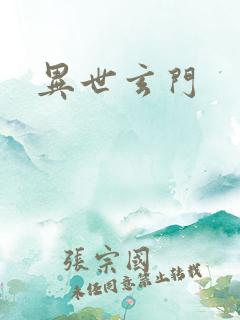 異世玄門
張宗國
未經同意禁止轉載